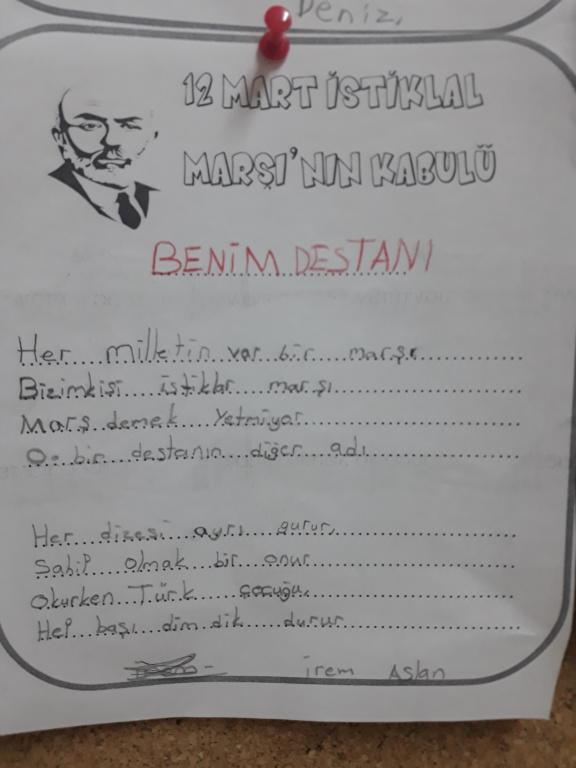 Deniz,
12 MART İSTİKLAL
MARŞI'NIN KABULÜ
BENİM DESTANI
Her milletin var bir marşı
Bizimkisi istiklar marşı
Marş demek Yetmiyor
O bir destanın diğer adı
Her dizesi ayrı gurur,
Sahip olmak bir onur
Okurken Türk çocuğu,
Hep başı dim dik durur
irem Aslan